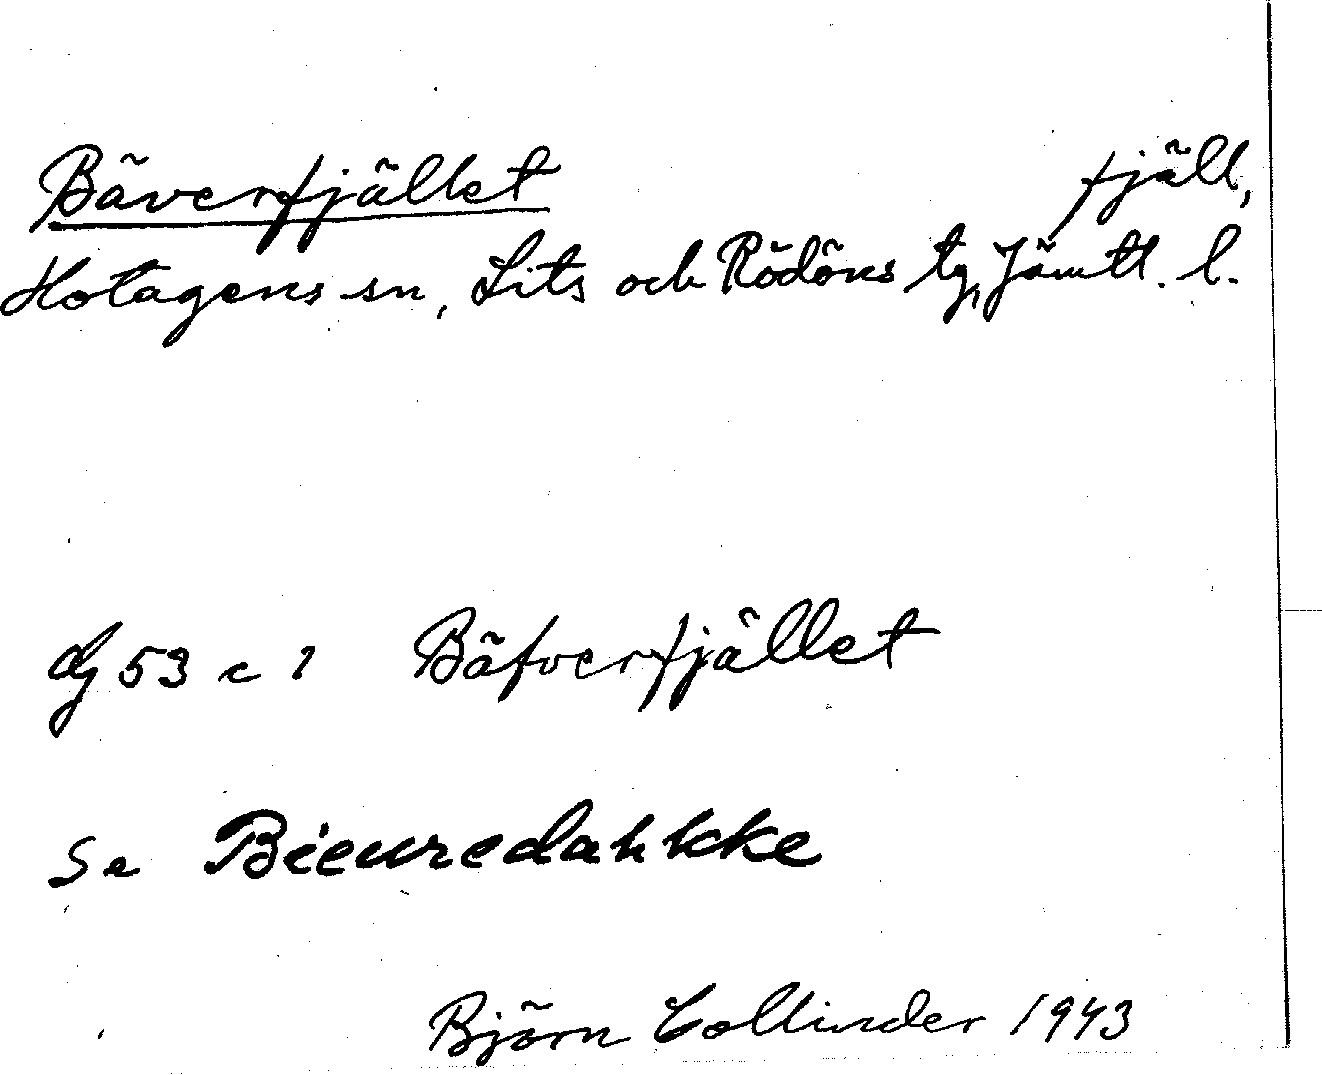 Bäverfjället fjäll,
Hotagens sn, Lits och Rödöns tg, Jämtl. l.
dg 53 c 1 Bäfverfjället
Se Bieuredahkke
Björn Collinder 1943